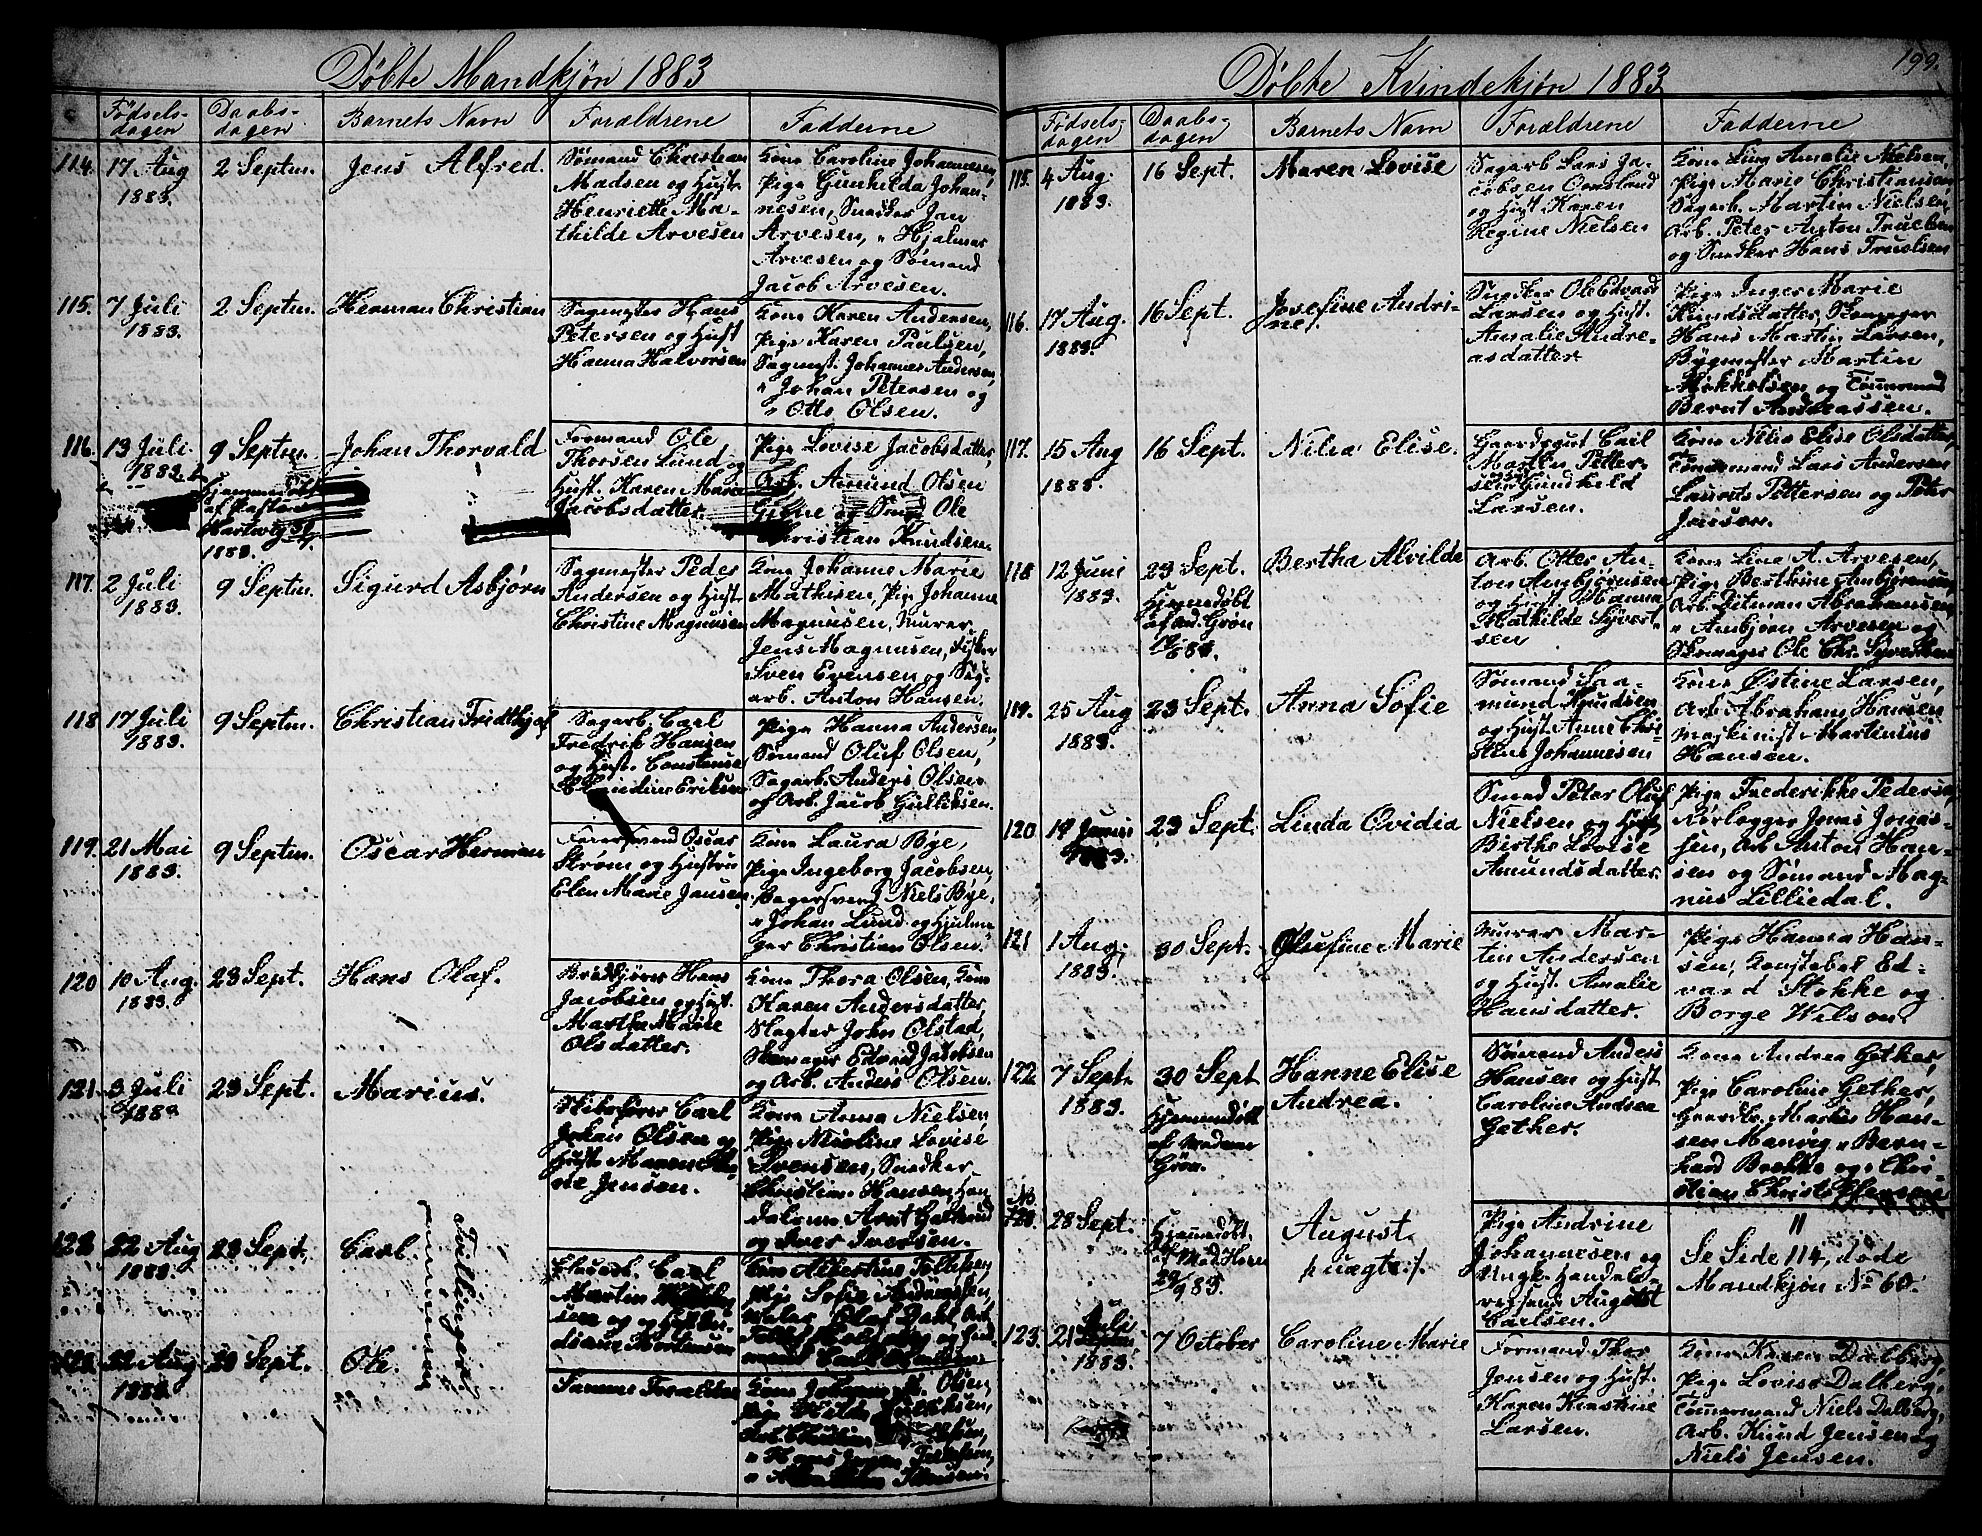 Døbte Mandkjøn 1883
Fødsels-
dagen
Daabs-
dagen
Barnets Navn
Forældrene
Fadderne
114.
17 Aug
1883.
2 Septm.
Jens Alfred.
Sømand Christian
Madsen og Hust.
Henriette Ma-
thilde Arvesen
Kone Caroline Johannesen,
Pige Gunhilda Johan-
nesen, Snedker Jan
Arvesen, " Hjalmar
Arvesen og Sømand
Jacob Arvesen.
115.
7 Juli
1883.
2 Septm.
Herman Christian
Sagmester Hans
Petersen og Hust
Hanna Halvorsen
Kone Karen Andersen,
Pige Karen Paulsen,
Sagmest. Johannes Andersen,
" Johan Petersen og
" Otto Olsen.
116.
13 Juli
1883.
9 Septm.
Hjemmedøbt
af Pastor
Hartwig
1883.
Johan Thorvald
Formand Ole
Thorsen Lund og
Hust. Karen Marie
Jacobsdatter.
Pige Lovise Jacobsdatter,
Arb. Amund Olsen
og Smed Ole
Christian Knudsen.
117.
2 Juli
1883.
9 Septm.
Sigurd Asbjørn
Sagmester Peder
Andersen og Hust
Christine Magnusen
Kone Johanne Marie
Mathisen, Pige Johanne
Magnusen, Murer
Jens Magnusen, Fisker
Sven Evensen og Sag-
arb. Anton Hansen.
118
17 Juli
1883.
9 Septm.
Christian Fridthjof
Sagarb. Carl
Fredrik Hansen
og Hust. Constanse
Eriksen
Pige Hanna Andersen,
Sømand Oluf Olsen,
Sagarb. Anders Olsen
og Arb. Jacob Gulliksen.
119.
21 Mai
1883.
9 Septm.
Oscar Herman
Oscar
Strøm og Hustru
Elen Marie Jansen
Kone Laura Bye,
Pige Ingeborg Jacobsen,
Bagersvend Niels Bye,
" Johan Lund og Hjulma-
ger Christian Olsen.
120
10 Aug.
1883.
23 Sept.
Hans Olaf.
Brødkjører Hans
Jacobsen og Hust.
Marthe Marie
Olsdatter.
Kone Thora Olsen, Kone
Karen Andersdatter,
Slagter John Olstad,
Skomager Edvard Jacobsen
og Arb. Anders Olsen.
121.
3 Juli
188
23 Sept.
Marius.
Skibsfører Carl
Johan Olsen og
Hust. Maren
Jensen.
Kone Anna Nielsen,
Pige Nicoline Lovise
Svensen, Snedker
Christian Hansen, Han-
og Iver Iversen.
122.
22 Aug
1883.
23 Sept.
Carl.
Tvillinger
Carl
Martin
Mortensen
Kone Albertine Tollefsen,
Pige Sofie
Maler Olaf Dahl, Arb.
22 Aug
1883.
23 Sept.
Ole.
Samme Forældre
Kone Johanne M. Olsen,
Pige Hilda
Døbte Kvindekjøn 1883
199.
Fødsels-
dagen
Daabs-
dagen
Barnets Navn
Forældrene
Fadderne
115.
4 Aug.
1883.
16 Sept.
Maren Lovise
Sagarb Lars Ja-
cobsen
og Hust Karen
Regine Nielsen
Kone Lina Amalie Nielsen,
Pige Marie Christiansen
Sagarb. Martin Nielsen
Arb. Peter Anton Truelsen
og Snedker Hans Truelsen
116.
17 Aug.
1883.
16 Sept.
Josefine Andri-
ne.
Snedker Ole Edvard
Larsen og Hust.
Amalie Andre-
asdatter
Pige Inger Marie
Knudsdatter, Skomager
Hans Martin Larsen,
Bygmester Martin
Mikkelsen og Tømmermand
Bernt Andreassen.
117.
15 Aug
1883.
16 Sept.
Nilia Elise.
Gaardsgut Carl
Martin Petter-
sen Gunhild
Larsen.
Kone Nilia Elise Olsdatter,
Tømmermand Lars Andersen
Laurits Pettersen og Peter
Jensen.
118
12 Juni
1883.
23 Sept.
Hjemmedøbt
af Md. Grøn
Bertha Alvilde
Arb. Otter An-
ton Ambjørnsen
og Hust. Hanna
Mathilde Syvert-
sen
Kone Line A. Arvesen,
Pige Berthine Ambjørnsen,
Arb. Ditman Abrahamsen,
" Ambjørn Arvesen og
Skomager Ole Chr. Syvertsen
119.
25 Aug
1883.
23 Sept.
Anna Sofie
Sømand Saa-
mund Knudsen
og Hust. Anne Chri-
stine Johannesen
Kone Østine Larsen,
Arb. Abraham Hansen
Maskinist Martinius
Hansen.
120
1883.
23 Sept.
Linda Ovidia
Smed Peter Oluf
Nielsen og Hust
Berthe Lovise
Amundsdatter.
Pige Frederikke Pedersen,
Rørlægger Jonas Jonas-
sen, Arb Anton Han-
sen og Sømand Mag-
nus Lilliedal.
121
1 Aug.
1883.
30 Sept.
Olufine Marie
Murer Mar-
tin Andersen
og Hust. Amalie
Hansdatter.
Pige Hanna Han-
sen, Konstabel Ed-
vard Stokke og
Borge Wilson.
122
7 Sept.
1883.
30 Sept
Hjemmedøbt
af Madame
Grøn.
Hanne Elise
Andrea.
Sømand Anders
Hansen og Hust
Caroline Andrea
Gether.
Kone Andrea Gether,
Pige Caroline Gether,
Gaardbr. Mathis Han-
sen Manvig, Bern-
hard Brekke og Chri-
stian
No
28 Sept.
Hjemmedøbt
af Mad Horn
29/9 83.
August.
/: uægte :/.
Pige Andrine
Johannesen og
Ungk. Handels-
reisende August
Carlsen.
"
Se Side 114, døde
Mandkjøn No 60.
"
123.
Juli
21
1883.
7 October
Caroline Marie
Formand Thor
Jensen og Hust.
Karen Kirstine
Larsen.
Kone Karen Dalberg,
Pige Lovise Dalberg,
Tømmermand Niels Dalberg,
Arb. Knud Jensen og
Niels Jensen.